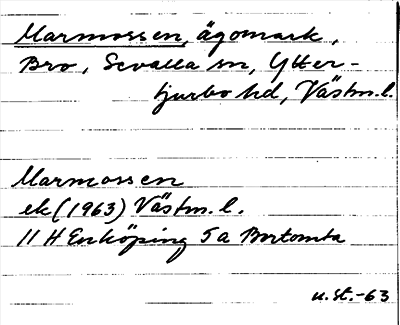 Marmossen, ägomark,
Bro, Sevalla sn, Ytter-
tjurbo hd, Västm.l.
Marmossen
ek (1963) Västm. l.
11 H Enköping 5a Bortomta
u.st.-63